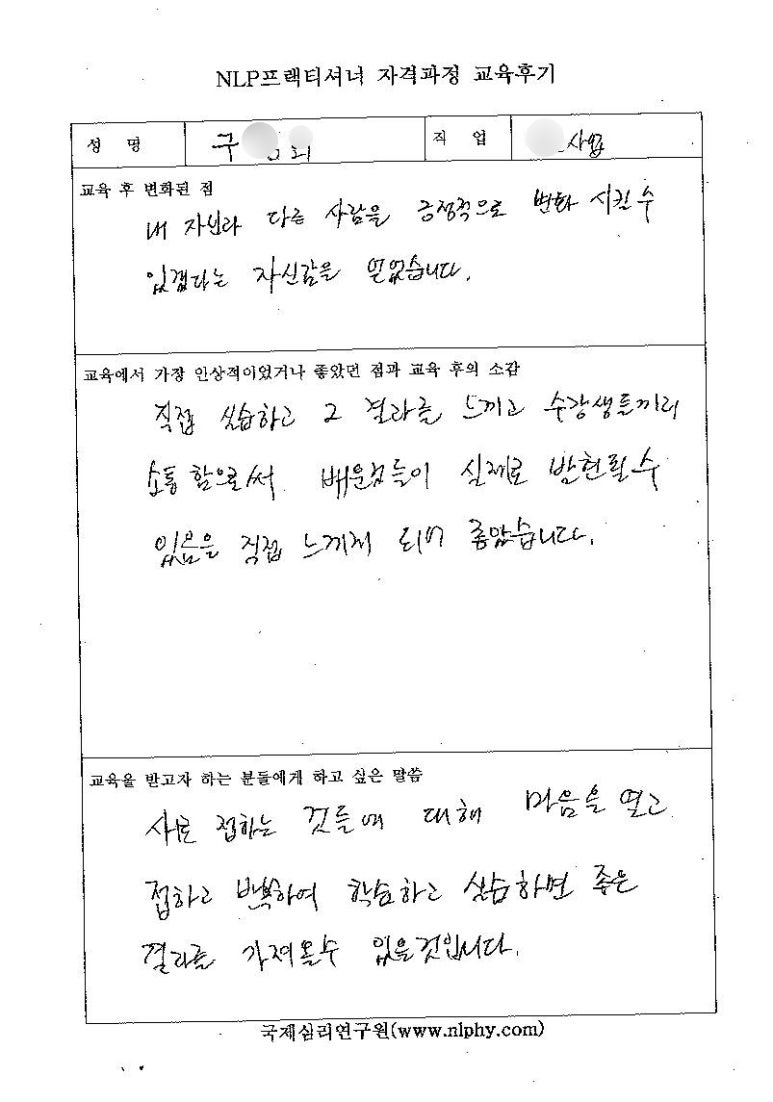 NLP프랙티셔너 자격과정 교육후기
성 명 구 직 업 사업
교육 후 변화된 점
내 자신과 다른 사람을 긍정적으로 변화 시킬 수
있겠다는 자신감을 얻었습니다.
교육에서 가장 인상적이었거나 좋았던 점과 교육 후의 소감
직접 실습하고 그 결과를 느끼고 수강생들끼리
소통 함으로써 배운점들이 실제로 발현될 수
있음을 직접 느끼게 되어 좋았습니다.
교육을 받고자 하는 분들에게 하고 싶은 말씀
새로 접하는 것들에 대해 마음을 열고
접하고 반복하여 학습하고 실습하면 좋은
결과를 가져올수 있을것입니다.
국제심리연구원(www.nlphy.com)